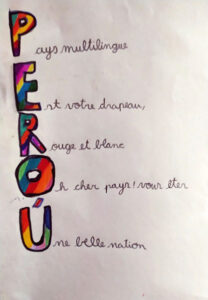 Pays multilingue
Est votre drapeau,
Rouge et blanc
Oh cher pays! vous êtes
Une belle nation